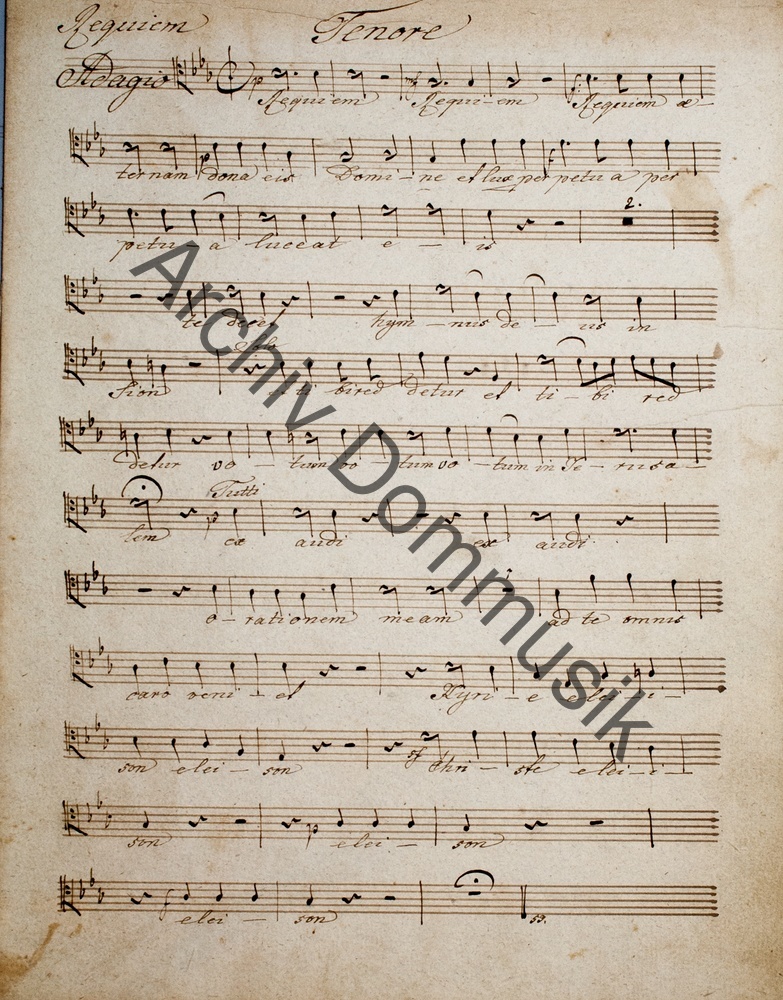 Requiem Tenore
Adagio
Requiem Requi-em Requiem æ-
ternam dona eis Domi-ne et lux perpetu a per
2.
petu-a luceat e-is
te decet hym-nus de-us in
Solo
Sion ti bi red detur et ti-bi red
detur vo-tum vo-tum vo-tum in Je-rusa-
Tutti
lem ex audi ex audi
o-rationem meam ad te omnis
caro veni-et Kyri-e elei-i-
son elei-son Chri-ste elei-i-
son elei-son
elei-son
53.
Archiv Dommusik